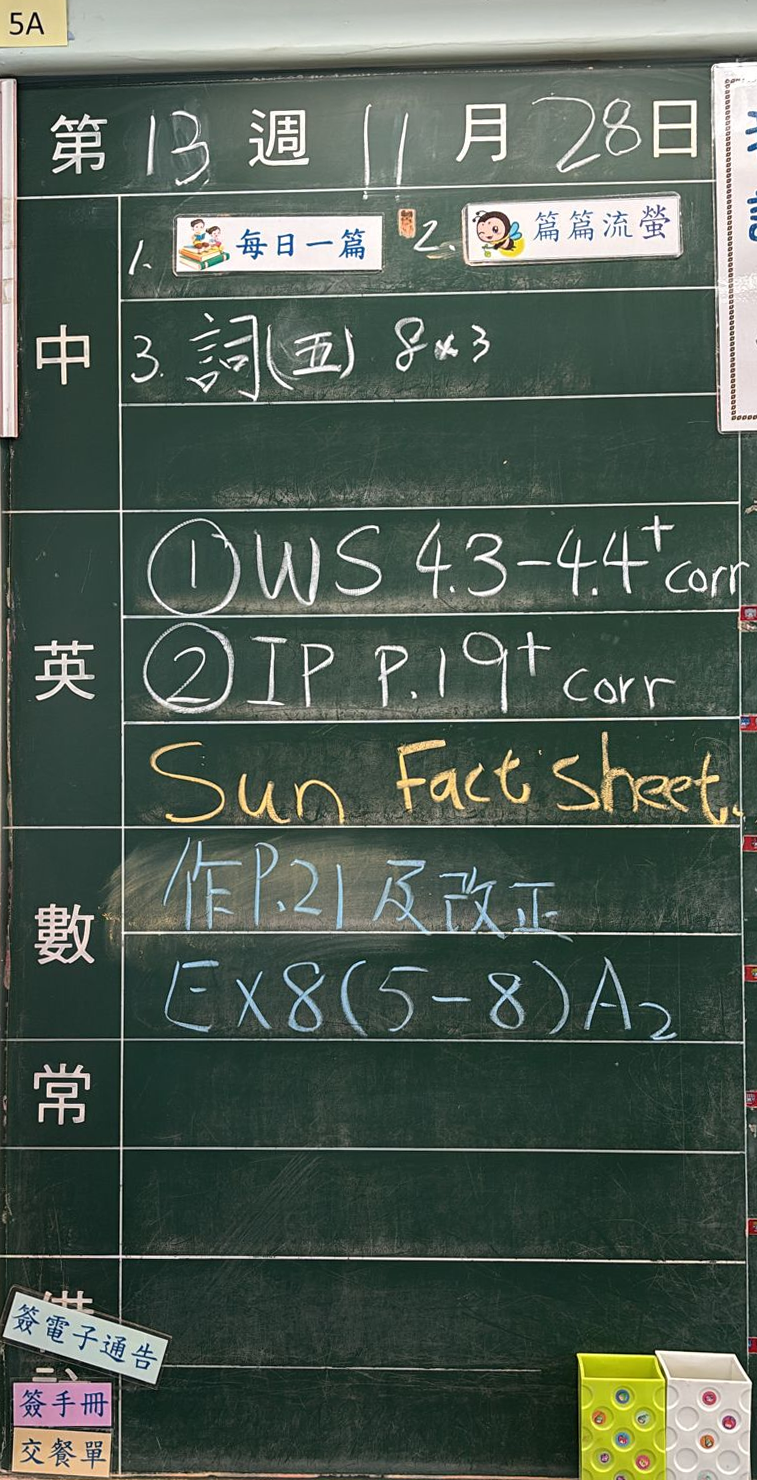 5A
第 13 週 11 月 28 日
中
1. 每日一篇 2. 篇篇流螢
3. 詞(五) 8×3
英
① WS 4.3-4.4+ corr
② IP P.19+ corr
Sun Fact Sheet
數
作P.21 及改正
Ex8(5-8)A2
常
簽電子通告
簽手冊
交餐單